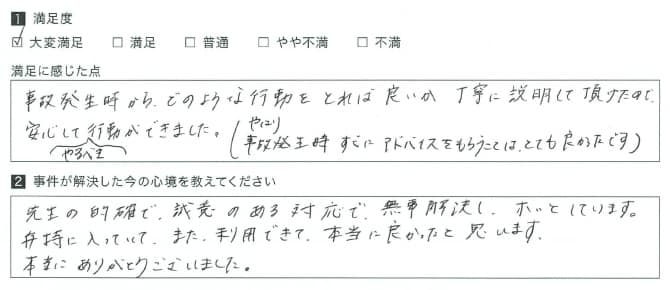 1 満足度
☑ 大変満足 □ 満足 □ 普通 □ やや不満 □ 不満
満足に感じた点
事故発生時から、どのような行動をとれば良いか 丁寧に説明して頂けたので、
安心して行動ができました。
やるべき
(やはり 事故発生時 すぐに アドバイスをもらうことは、とても良かったです)
2 事件が解決した今の心境を教えてください
先生の的確で、誠意のある対応で、無事解決し、ホッとしています。
弁特に入っていて、また、利用できて、本当に良かったと思います。
本当にありがとうございました。